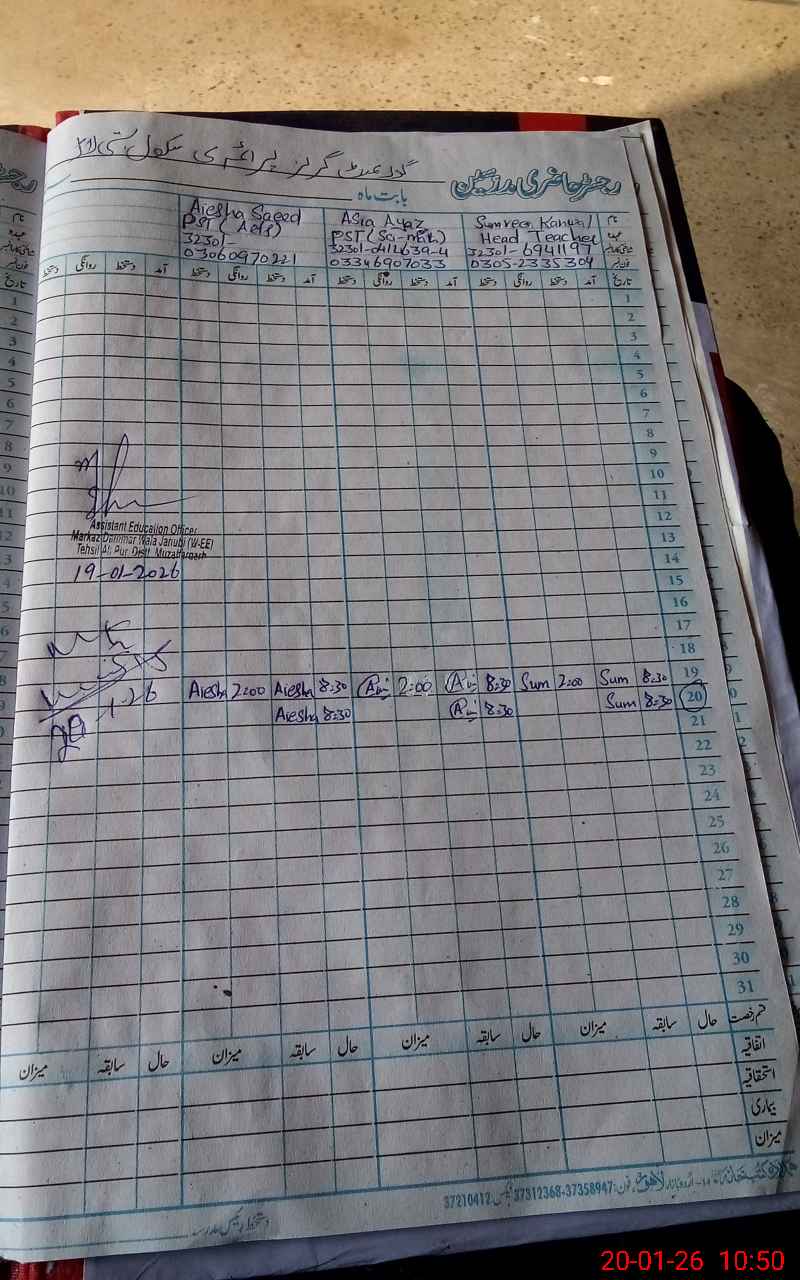 گورنمنٹ گرلز پرائمری سکول
رجسٹر حاضری مدرسین
بابت ماہ
نام Sumreen Kanwal Asia Ayaz Aiesha Saeed
عہدہ Head Teacher PST (Sc-math) PST (Arts)
32301-694119 32301-0412639-4 32301-
0305-2335304 03346907033 03060970221
تاریخ آمد دستخط روانگی دستخط آمد دستخط روانگی دستخط آمد دستخط روانگی دستخط آمد دستخط روانگی دستخط
1
2
3
4
5
6
7
8
9
10
11
12
13
14
15
16
17
18
19 8:30 Sum 2:00 Sum 8:30 2:00 8:30 Aiesha 2:00 Aiesha
20 8:30 Sum 8:30 8:30 Aiesha
21
22
23
24
25
26
27
28
29
30
31
Assistant Education Officer
Markaz Dammar Wala Janubi (W-EE)
Tehsil Ali Pur Distt. Muzaffargarh
19-01-2026
20-1-26
قسم رخصت حال سابقہ میزان حال سابقہ میزان حال سابقہ میزان حال سابقہ میزان
اتفاقیہ
استحقاقیہ
بیماری
میزان
اردو بازار لاہور فون: 37358947-37312368 فیکس: 37210412
دستخط رئیس مدرسہ
20-01-26 10:50